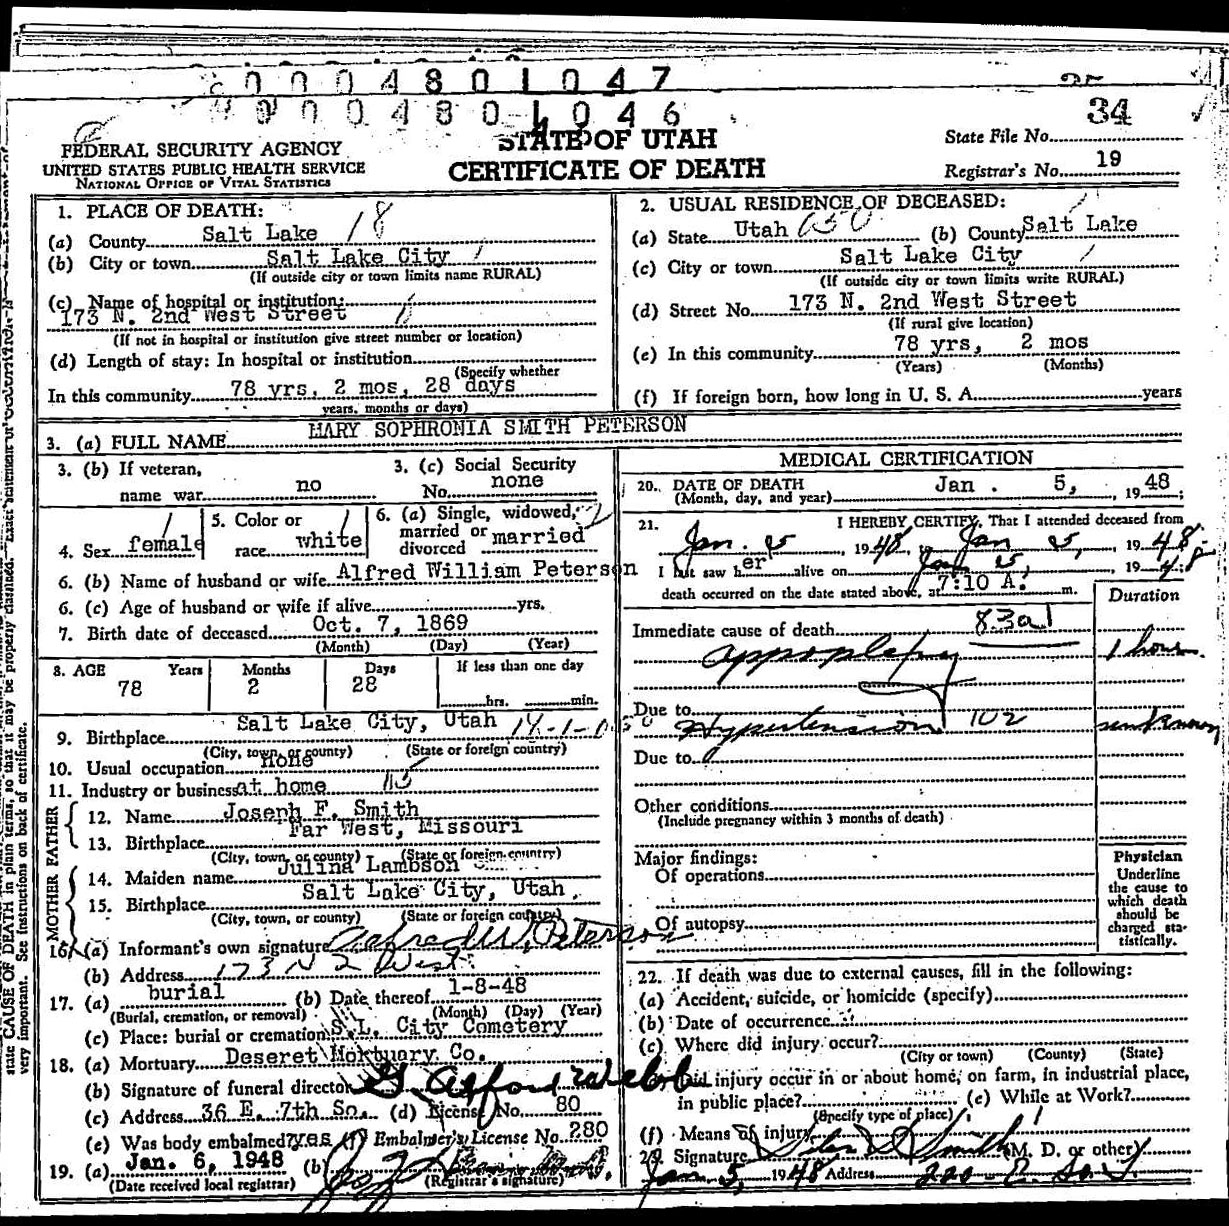 0 0 0 4 8 0 1 0 4 7
0 0 0 4 8 0 1 0 4 6
34
FEDERAL SECURITY AGENCY
UNITED STATES PUBLIC HEALTH SERVICE
NATIONAL OFFICE OF VITAL STATISTICS
STATE OF UTAH
CERTIFICATE OF DEATH
State File No.
Registrar's No. 19
1. PLACE OF DEATH: 18
(a) County Salt Lake
(b) City or town Salt Lake City
(If outside city or town limits name RURAL)
(c) Name of hospital or institution:
173 N. 2nd West Street
(If not in hospital or institution give street number or location)
(d) Length of stay: In hospital or institution
(Specify whether
In this community 78 yrs, 2 mos, 28 days
years, months or days)
2. USUAL RESIDENCE OF DECEASED:
(a) State Utah (b) County Salt Lake
(c) City or town Salt Lake City
(If outside city or town limits write RURAL)
(d) Street No. 173 N. 2nd West Street
(If rural give location)
(e) In this community 78 yrs, 2 mos
(Years) (Months)
(f) If foreign born, how long in U. S. A. years
3. (a) FULL NAME MARY SOPHRONIA SMITH PETERSON
3. (b) If veteran,
name war no
3. (c) Social Security
No. none
4. Sex female
5. Color or
race white
6. (a) Single, widowed,
married or
divorced married
6. (b) Name of husband or wife Alfred William Peterson
6. (c) Age of husband or wife if alive yrs.
7. Birth date of deceased Oct. 7, 1869
(Month) (Day) (Year)
8. AGE Years Months Days If less than one day
78 2 28 hrs. min.
9. Birthplace Salt Lake City, Utah
(City, town, or county) (State or foreign country)
10. Usual occupation none
11. Industry or business at home
FATHER
12. Name Joseph F. Smith
13. Birthplace Far West, Missouri
(City, town, or county) (State or foreign country)
MOTHER
14. Maiden name Julina Lambson
15. Birthplace Salt Lake City, Utah
(City, town, or county) (State or foreign country)
16. (a) Informant's own signature Alfred W. Peterson
(b) Address 173 N 2 West
17. (a) burial (b) Date thereof 1-8-48
(Burial, cremation, or removal) (Month) (Day) (Year)
(c) Place: burial or cremation S.L. City Cemetery
18. (a) Mortuary Deseret Mortuary Co.
(b) Signature of funeral director
(c) Address 36 E. 7th So. (d) License No. 80
(e) Was body embalmed? yes (f) Embalmer's License No. 280
19. (a) Jan. 6, 1948 (b)
(Date received local registrar) (Registrar's signature)
MEDICAL CERTIFICATION
20. DATE OF DEATH
(Month, day, and year) Jan. 5, 1948;
21. I HEREBY CERTIFY, That I attended deceased from
Jan. 5, 1948, Jan 5, 1948
I last saw her alive on Jan 5, 1948;
death occurred on the date stated above, at 7:10 A. m.
Duration
Immediate cause of death 83a1
appoplexy 1 hour
Due to
Hypertension 102 unknown
Due to
Other conditions
(Include pregnancy within 3 months of death)
Major findings:
Of operations
Of autopsy
Physician
Underline
the cause to
which death
should be
charged sta-
tistically.
22. If death was due to external causes, fill in the following:
(a) Accident, suicide, or homicide (specify)
(b) Date of occurrence
(c) Where did injury occur?
(City or town) (County) (State)
Did injury occur in or about home, on farm, in industrial place,
in public place? (e) While at Work?
(Specify type of place)
(f) Means of injury
23. Signature Smith (M. D. or other)
Jan 5, 1948 Address 220 E. So. T.
state CAUSE OF DEATH in plain terms, so that it may be properly classified.
very important. See instructions on back of certificate.